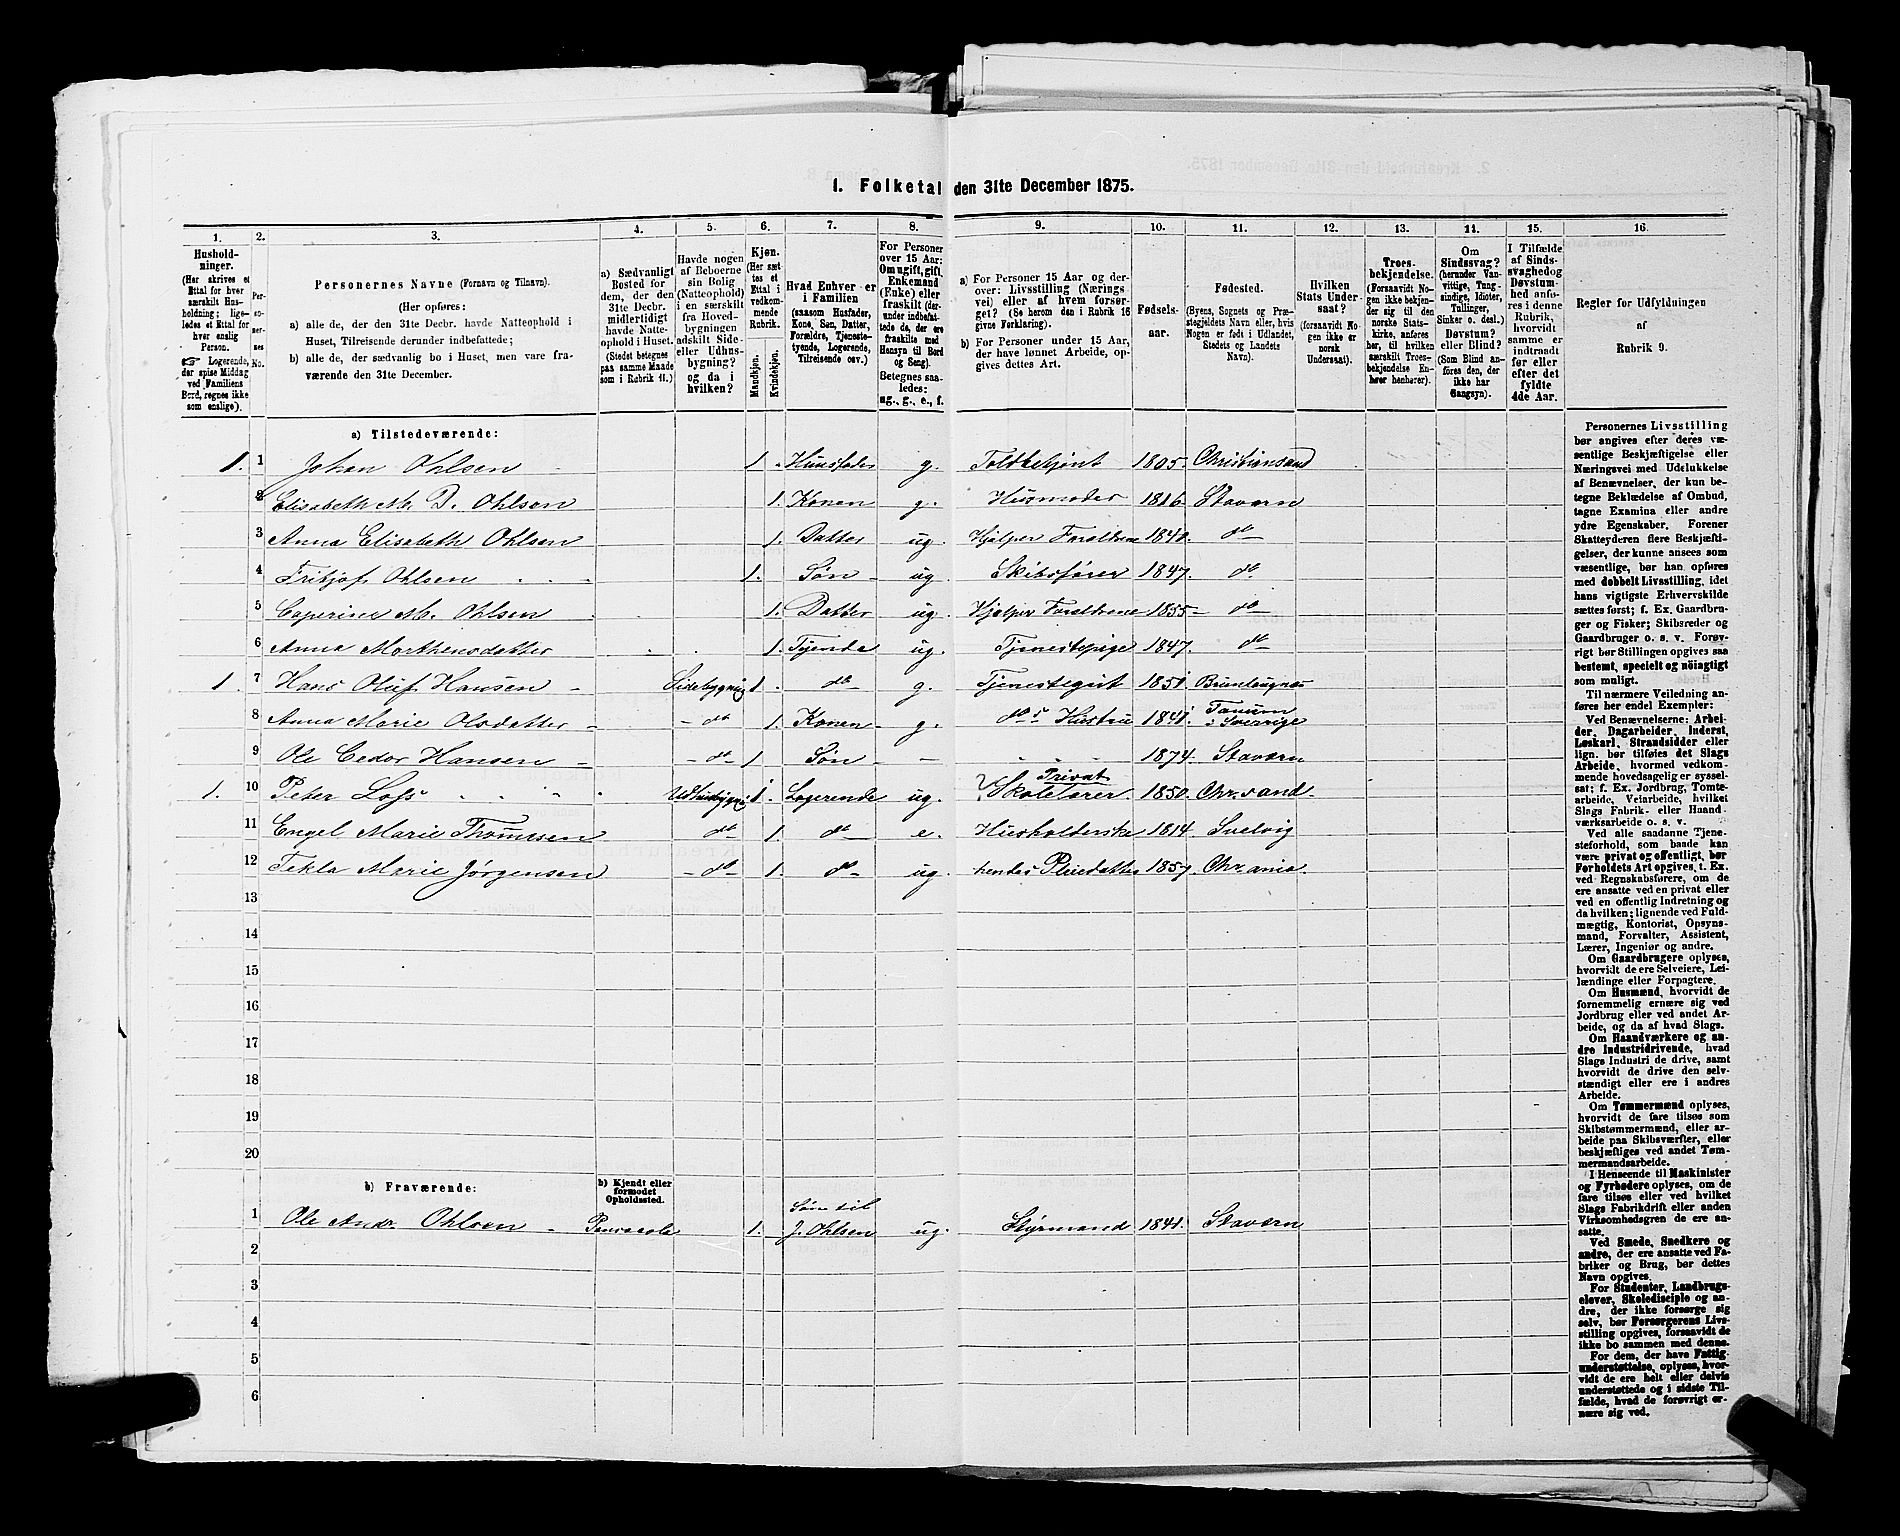 1. Folketal den 31te December 1875.
1. 2. 3. 4. 5. 6. 7. 8. 9. 10. 11. 12. 13. 14. 15. 16.
Hushold-
ninger.
(Her skrives et
Ettal for hver
særskilt Hus-
holdning; lige-
ledes et Ettal for
hver enslig
Person.
☞ Logerende,
der spise Middag
ved Familiens
Bord, regnes ikke
som enslige).
Per-
so-
ner-
nes
No.
Personernes Navne (Fornavn og Tilnavn).
(Her opføres:
a) alle de, der den 31te Decbr. havde Natteophold i
Huset, Tilreisende derunder indbefattede;
b) alle de, der sædvanlig bo i Huset, men vare fra-
værende den 31te December.
a) Sædvanligt
Bosted for
dem, der den
31te Decbr.
midlertidigt
havde Natte-
ophold i Huset.
(Stedet betegnes
paa samme Maade
som i Rubrik 11.)
Havde nogen
af Beboerne
sin Bolig
(Natteophold)
i en særskilt
fra Hoved-
bygningen
adskilt Side-
eller Udhus-
bygning?
og da i
hvilken?
Kjøn.
(Her sæt-
tes et
Ettal i
vedkom-
mende
Rubrik.
Mandkjøn.
Kvindekjøn.
Hvad Enhver er
i Familien
(saasom Husfader,
Kone, Søn, Datter,
Forældre, Tjeneste-
tyende, Logerende,
Tilreisende osv.)
For Personer
over 15 Aar:
Om ugift, gift,
Enkemand
(Enke) eller
fraskilt (der-
under indbefat-
tede de, der ere
fraskilte med
Hensyn til Bord
og Seng).
Betegnes saa-
ledes:
ug., g., e., f.
a) For Personer 15 Aar og der-
over: Livsstilling (Nærings-
vei) eller af hvem forsør-
get? (Se herom den i Rubrik 16
givne Forklaring).
b) For Personer under 15 Aar,
der have lønnet Arbeide, op-
gives dettes Art.
Fødsels-
aar.
Fødested.
(Byens, Sognets og Præ-
stegjeldets Navn eller, hvis
Nogen er født i Udlandet,
Stedets og Landets
Navn).
Hvilken
Stats Under-
saat?
(forsaavidt No-
gen ikke er
norsk
Undersaat).
Troes-
bekjendelse.
(Forsaavidt No-
gen ikke bekjen-
der sig til den
norske Stats-
kirke, anføres
her, til hvilken
særskilt Troes-
bekjendelse En-
hver henhører).
Om
Sindssvag?
(herunder Van-
vittige, Tung-
sindige, Idioter,
Tullinger,
Sinker o. desl.)
Døvstum?
eller Blind?
(Som Blind an-
føres den, der
ikke har
Gangsyn).
I Tilfælde
af Sinds-
svaghed og
Døvstum-
hed anfø-
res i denne
Rubrik,
hvorvidt
samme er
indtraadt
før eller
efter det
fyldte
4de Aar.
Regler for Udfyldningen
af
Rubrik 9.
a) Tilstedeværende:
1. 1 Johan Ohlsen 1 Huusfader g. Toldbetjent 1805. Christiansand
2 Elisabeth M. D. Ohlsen 1. Konen g. Husmoder 1816 Stavern
3 Anna Elisabeth Ohlsen 1. Datter ug. Hjælper Forældrene 1840. do
4 Fritjof Ohlsen 1. Søn ug. Skibsfører 1847. do
5 M. Ohlsen 1. Datter ug. Hjælper Forældrene 1855 do
6 Anna Morthensdatter 1. Tjende ug. Tjenestepige 1847. do
1. 7 Hans Oluf Hansen Sidebygnig 1. do g. Tjenestegut 1851 Brunlaugnæs
8 Anna Marie Olsdatter do 1. Konen g. do s Hustru 1841 Tanum
i Sverrige
9 Ole Cedor Hansen do 1 Søn 1874. Stavern
1. 10 Peter Lofs Udhusbygnig 1. Logerende ug. Privat
Skolelærer. 1850. Chr.sand
11 Engel Marie Thommesen do 1. do e. Husholderske 1814 Svelvig
12 Tekla Marie Jørgensen do 1. do ug. hendes Pleiedatter 1857. Chr.ania
13
14
15
16
17
18
19
20
b) Fraværende:
b) Kjendt eller
formodet
Opholdssted.
1 Ole Andr. Ohlsen Pensacola 1. Søn til
J. Ohlsen ug. Styrmand 1841. Stavern
2
3
4
5
6
Personernes Livsstilling
bør angives efter deres væ-
sentlige Beskjæftigelse eller
Næringsvei med Udelukkelse
af Benævnelser, der kun be-
tegne Beklædelse af Ombud,
tagne Examina eller andre
ydre Egenskaber. Forener
Skatteyderen flere Beskjæfti-
gelser, der kunne ansees som
væsentlige, bør han opføres
med dobbelt Livsstilling, idet
hans vigtigste Erhvervskilde
sættes først; f. Ex. Gaardbru-
ger og Fisker; Skibsreder og
Gaardbruger o. s. v. Forøv-
rigt bør Stillingen opgives saa
bestemt, specielt og nöiagtigt
som muligt.
Til nærmere Veiledning an-
føres her endel Exempler:
Ved Benævnelserne: Arbei-
der, Dagarbeider, Inderst,
Løskarl, Strandsidder eller
lign. bør tilføies det Slags
Arbeide, hvormed vedkom-
mende hovedsagelig er syssel-
sat; f. Ex. Jordbrug, Tomte-
arbeide, Veiarbeide, hvilket
Slags Fabrik- eller Haand-
værksarbeide o. s. v.
Ved alle saadanne Tjene-
steforhold, som baade kan
være privat og offentligt, bør
Forholdets Art opgives, t. Ex.
ved Regnskabsførere, om de
ere ansatte ved en privat eller
ved en offentlig Indretning og
da hvilken; lignende ved Fuld-
mægtig, Kontorist, Opsyns-
mand, Forvalter, Assistent,
Lærer, Ingeniør og andre.
Om Gaardbrugere oplyses,
hvorvidt de ere Selveiere, Lei-
lændinge eller Forpagtere.
Om Husmænd, hvorvidt de
fornemmelig ernære sig ved
Jordbrug eller ved andet Ar-
beide, og da af hvad Slags.
Om Haandværkere og an-
dre Industridrivende, hvad
Slags Industri de drive, samt
hvorvidt de drive den selv-
stændigt eller ere i andres
Arbeide.
Om Tømmermænd oplyses,
hvorvidt de fare tilsøs som
Skibstømmermænd, eller ar-
beide paa Skibsværfter, eller
beskjæftiges ved andet Tøm-
mermandsarbeide.
I Henseende til Maskinister
og Fyrbødere oplyses, om de
fare tilsøs eller ved hvilket
Slags Fabrikdrift eller anden
Virksomhedsgren de ere an-
satte.
Ved Smede, Snedkere og
andre, der ere ansatte ved Fa-
briker og Brug, bør dettes
Navn opgives.
For Studenter, Landbrugs-
elever, Skoledisciple og an-
dre, der ikke forsørge sig
selv, bør Forsørgerens Livs-
stilling opgives, forsaavidt de
ikke bo sammen med denne.
For dem, der have Fattig-
understøttelse, oplyses, hvor-
vidt de ere helt eller delvis
understøttede og i sidste Til-
fælde, hvad de forøvrigt er-
nære sig ved.